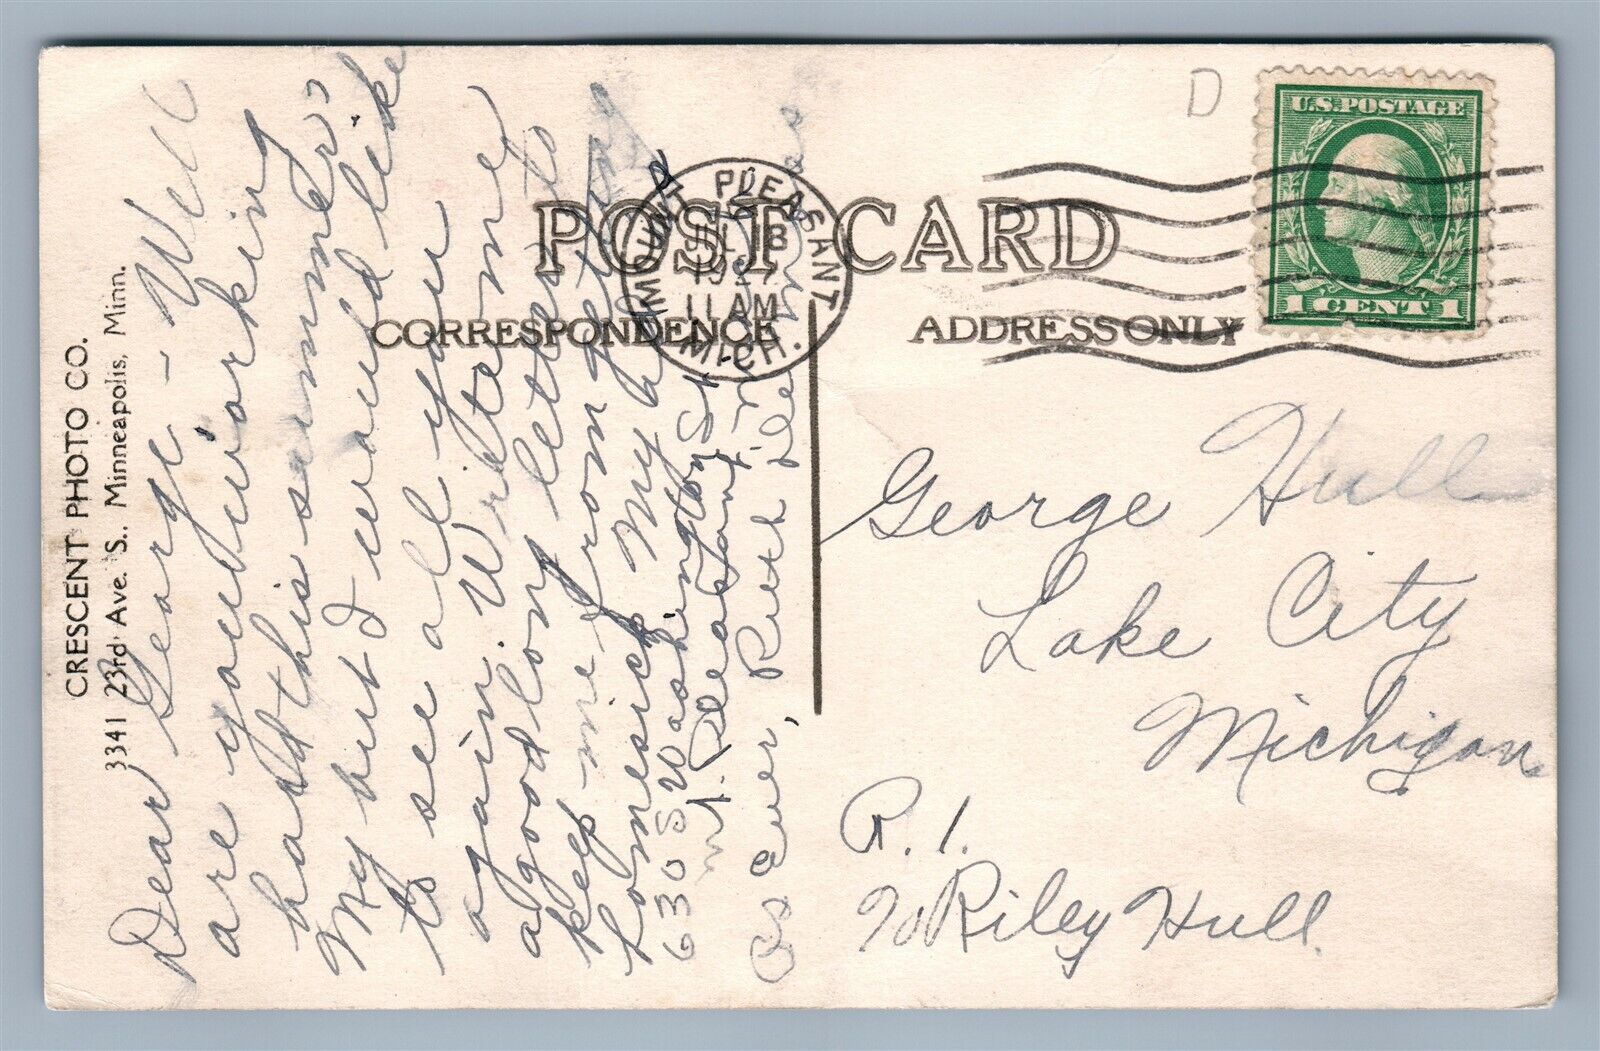 CRESCENT PHOTO CO.
3341 23rd Ave. S., Minneapolis, Minn.
Dear George - Well
are you working
hard this summer?
My but I would like
to see all you
again. Write me
a good long letter to
keep me from getting
homesick. My
630 S Washington St
Mt. Pleasant,
As Ever, Ruth
POST CARD
CORRESPONDENCE
ADDRESS ONLY
MOUNT PLEASANT
JUL 18
11 AM
MICH.
D
U.S. POSTAGE
1 CENT 1
George Hull
Lake City
Michigan
R. 1.
% Riley Hull.